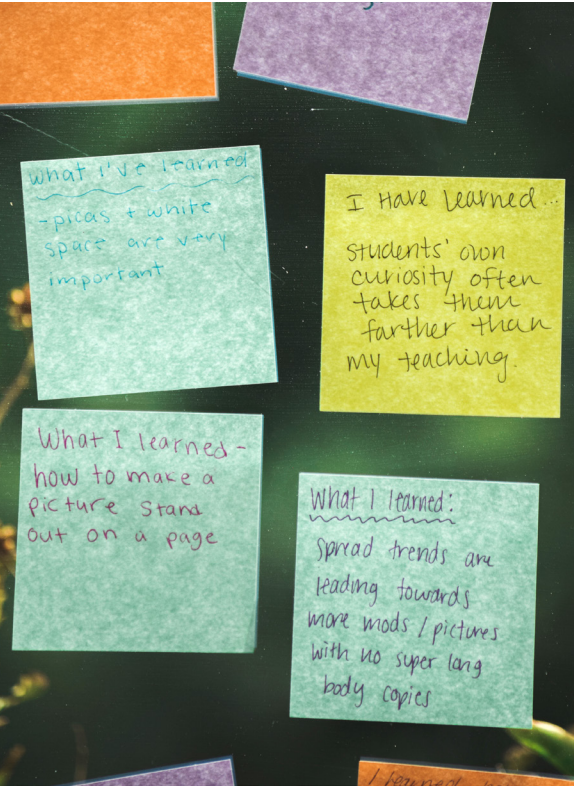 what i've learned
-picas + white
space are very
important
I Have Learned...
students' own
curiosity often
takes them
farther than
my teaching.
What I learned -
how to make a
picture stand
out on a page
What I learned:
spread trends are
leading towards
more mods / pictures
with no super long
body copies
I learned